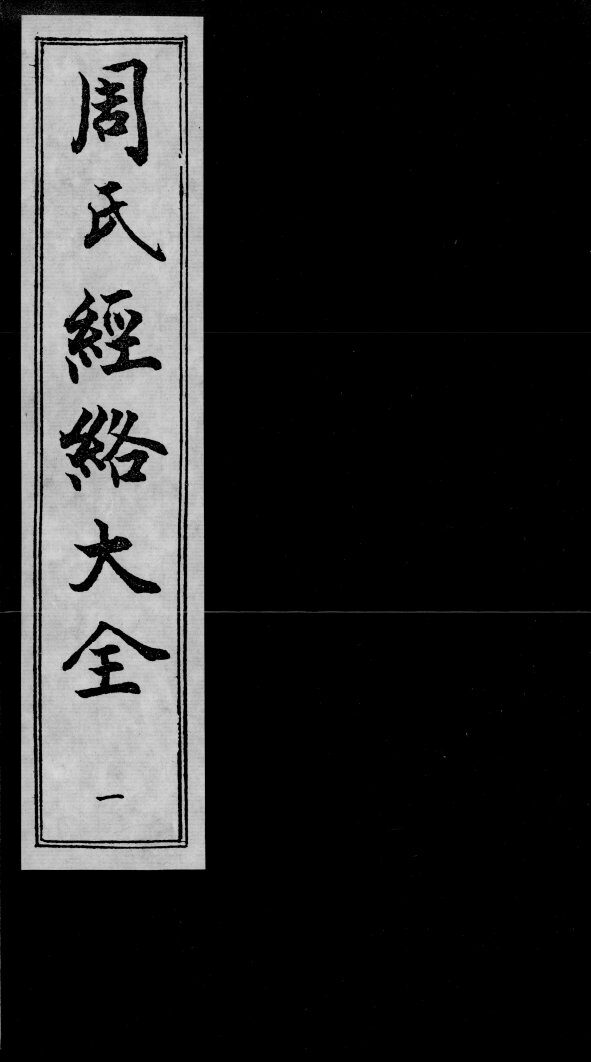 周氏經絡大全
一